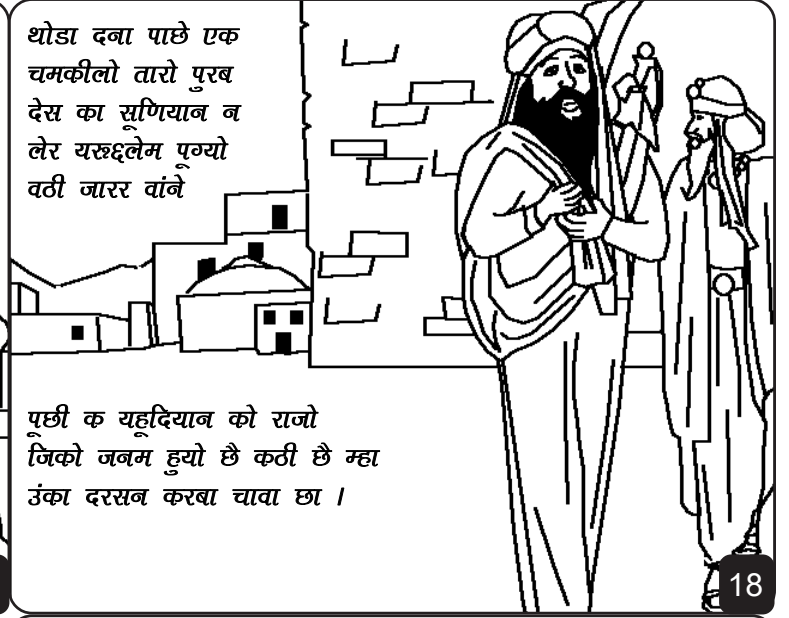 थोडा दना पाछे एक
चमकीलो तारो पुरब
देस का सूणियान न
लेर यरुद्दलेम पूग्यो
वठी जारर वांने
पूछी क यहूदियान को राजो
जिको जनम हुयो छै कठी छै म्हा
उंका दरसन करबा चावा छा ।
18